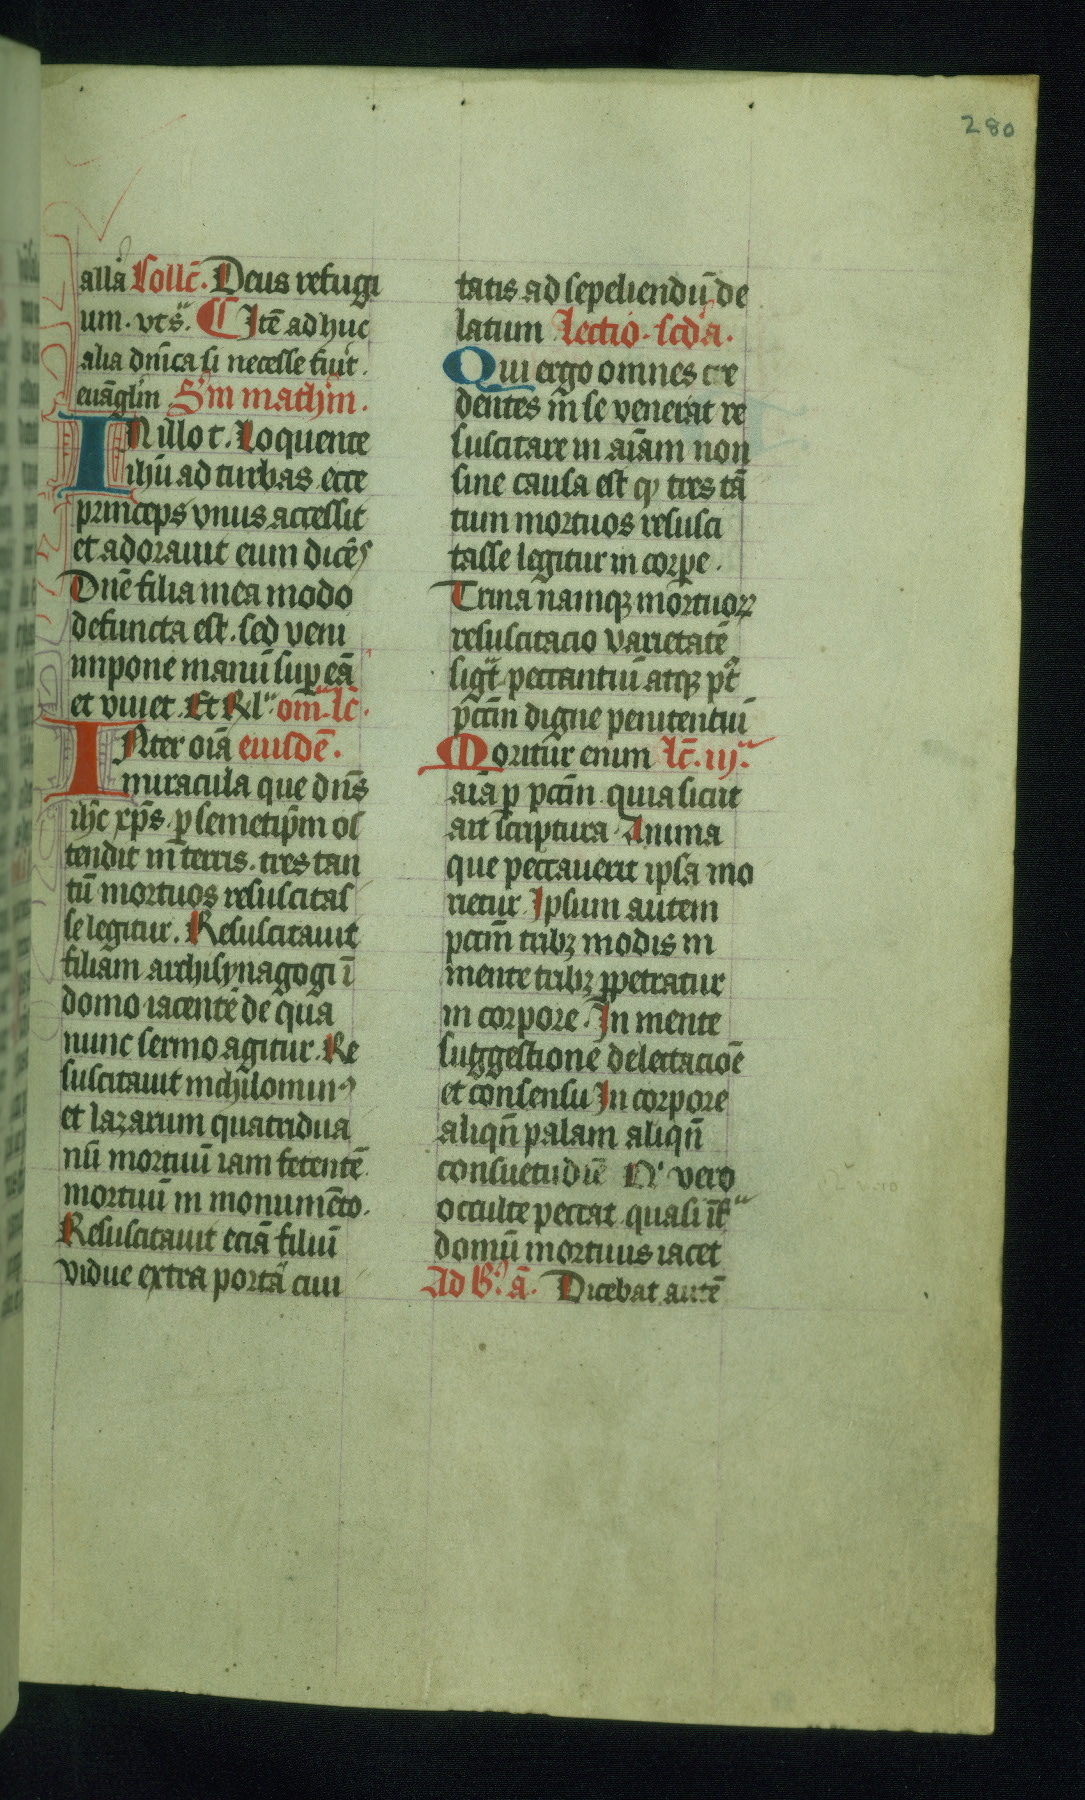 280
alla Collc̄. Deus refugi
um. vt sͣ. ¶ Itē adhuc
alia dn̄ica si necesse fuit̉.
euāgliū Sm̄ mathm̄.
IN illo t. Loquente
ihū ad turbas ecce
princeps vnus accessit
et adorauit eum dicēs
Dn̄e filia mea modo
defuncta est. sed veni
impone manū sup̱ eā
et viuet. Et Rlͣ. om̄. lc̄.
INter oīa eiusdē.
miracula que dn̄s
ihc̄ xp̄s p̱ semetip̄m os
tendit in terris. tres tan
tū mortuos resuscitas
se legitur. Resuscitauit
filiam archisynagogi ī
domo iacentē de qua
nunc sermo agitur. Re
suscitauit nichilominꝰ
et lazarum quatridua
nū mortuū iam fetentē
mortuū in monumēto.
Resuscitauit eciā filiū
vidue extra portā ciui
tatis ad sepeliendū de
latum Lectio. scd̄a.
Qui ergo omnes cre
dentes in se venerat re
suscitare in aīam non
sine causa est qͥ tres tā
tum mortuos resusci
tasse legitur in corpe.
Trina namqꝫ mortuoꝝ
resuscitacio varietatē
sigᵗ peccantiū atqꝫ pᵗ
pctm̄ digne penitentiū
Moritur enim lc̄. iijͣ.
aīa p̱ pctm̄. quia sicut
ait scriptura. Anima
que peccauerit ipsa mo
rietur. Ipsum autem
pctm̄ tribꝫ modis in
mente tribꝫ ꝑpetratur
in corpore. In mente
suggestione delectacioē
et consensu In corpore
aliqn̄ palam aliqn̄
consuetudīe N' vero
occulte peccat quasi īfͣ
domū mortuus iacet
Ad B. ā. Dicebat autē